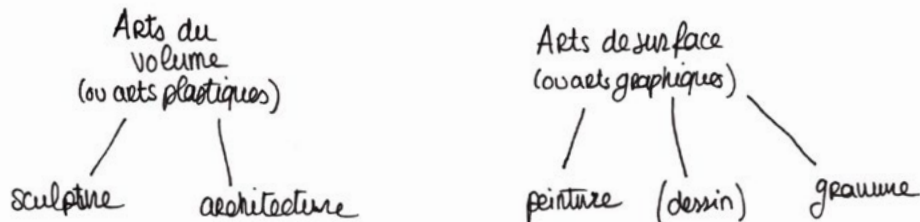 Arts du
volume
(ou arts plastiques)
sculpture
architecture
Arts de surface
(ou arts graphiques)
peinture
(dessin)
gravure